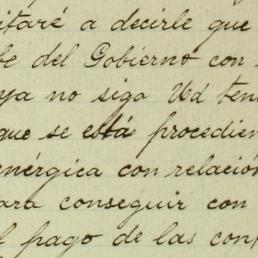 itaré a decirle que
be del Gobierno con
ya no siga Ud ten
que se está procedien
enérgica con relación
ara conseguir con
l pago de las con